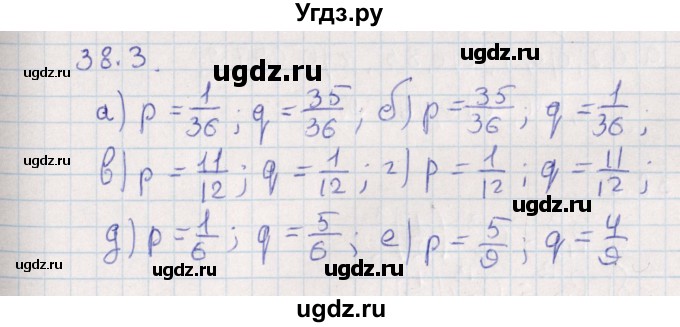 Угдз.ру
38.3.
ugdz.ru ugdz.ru ugdz.ru
а) p = 1/36; q = 35/36; б) p = 35/36; q = 1/36;
ugdz.ru ugdz.ru
в) p = 11/12; q = 1/12; г) p = 1/12; q = 11/12;
ugdz.ru ugdz.ru ugdz.ru
д) p = 1/6; q = 5/6; е) p = 5/9; q = 4/9
ugdz.ru ugdz.ru
ugdz.ru